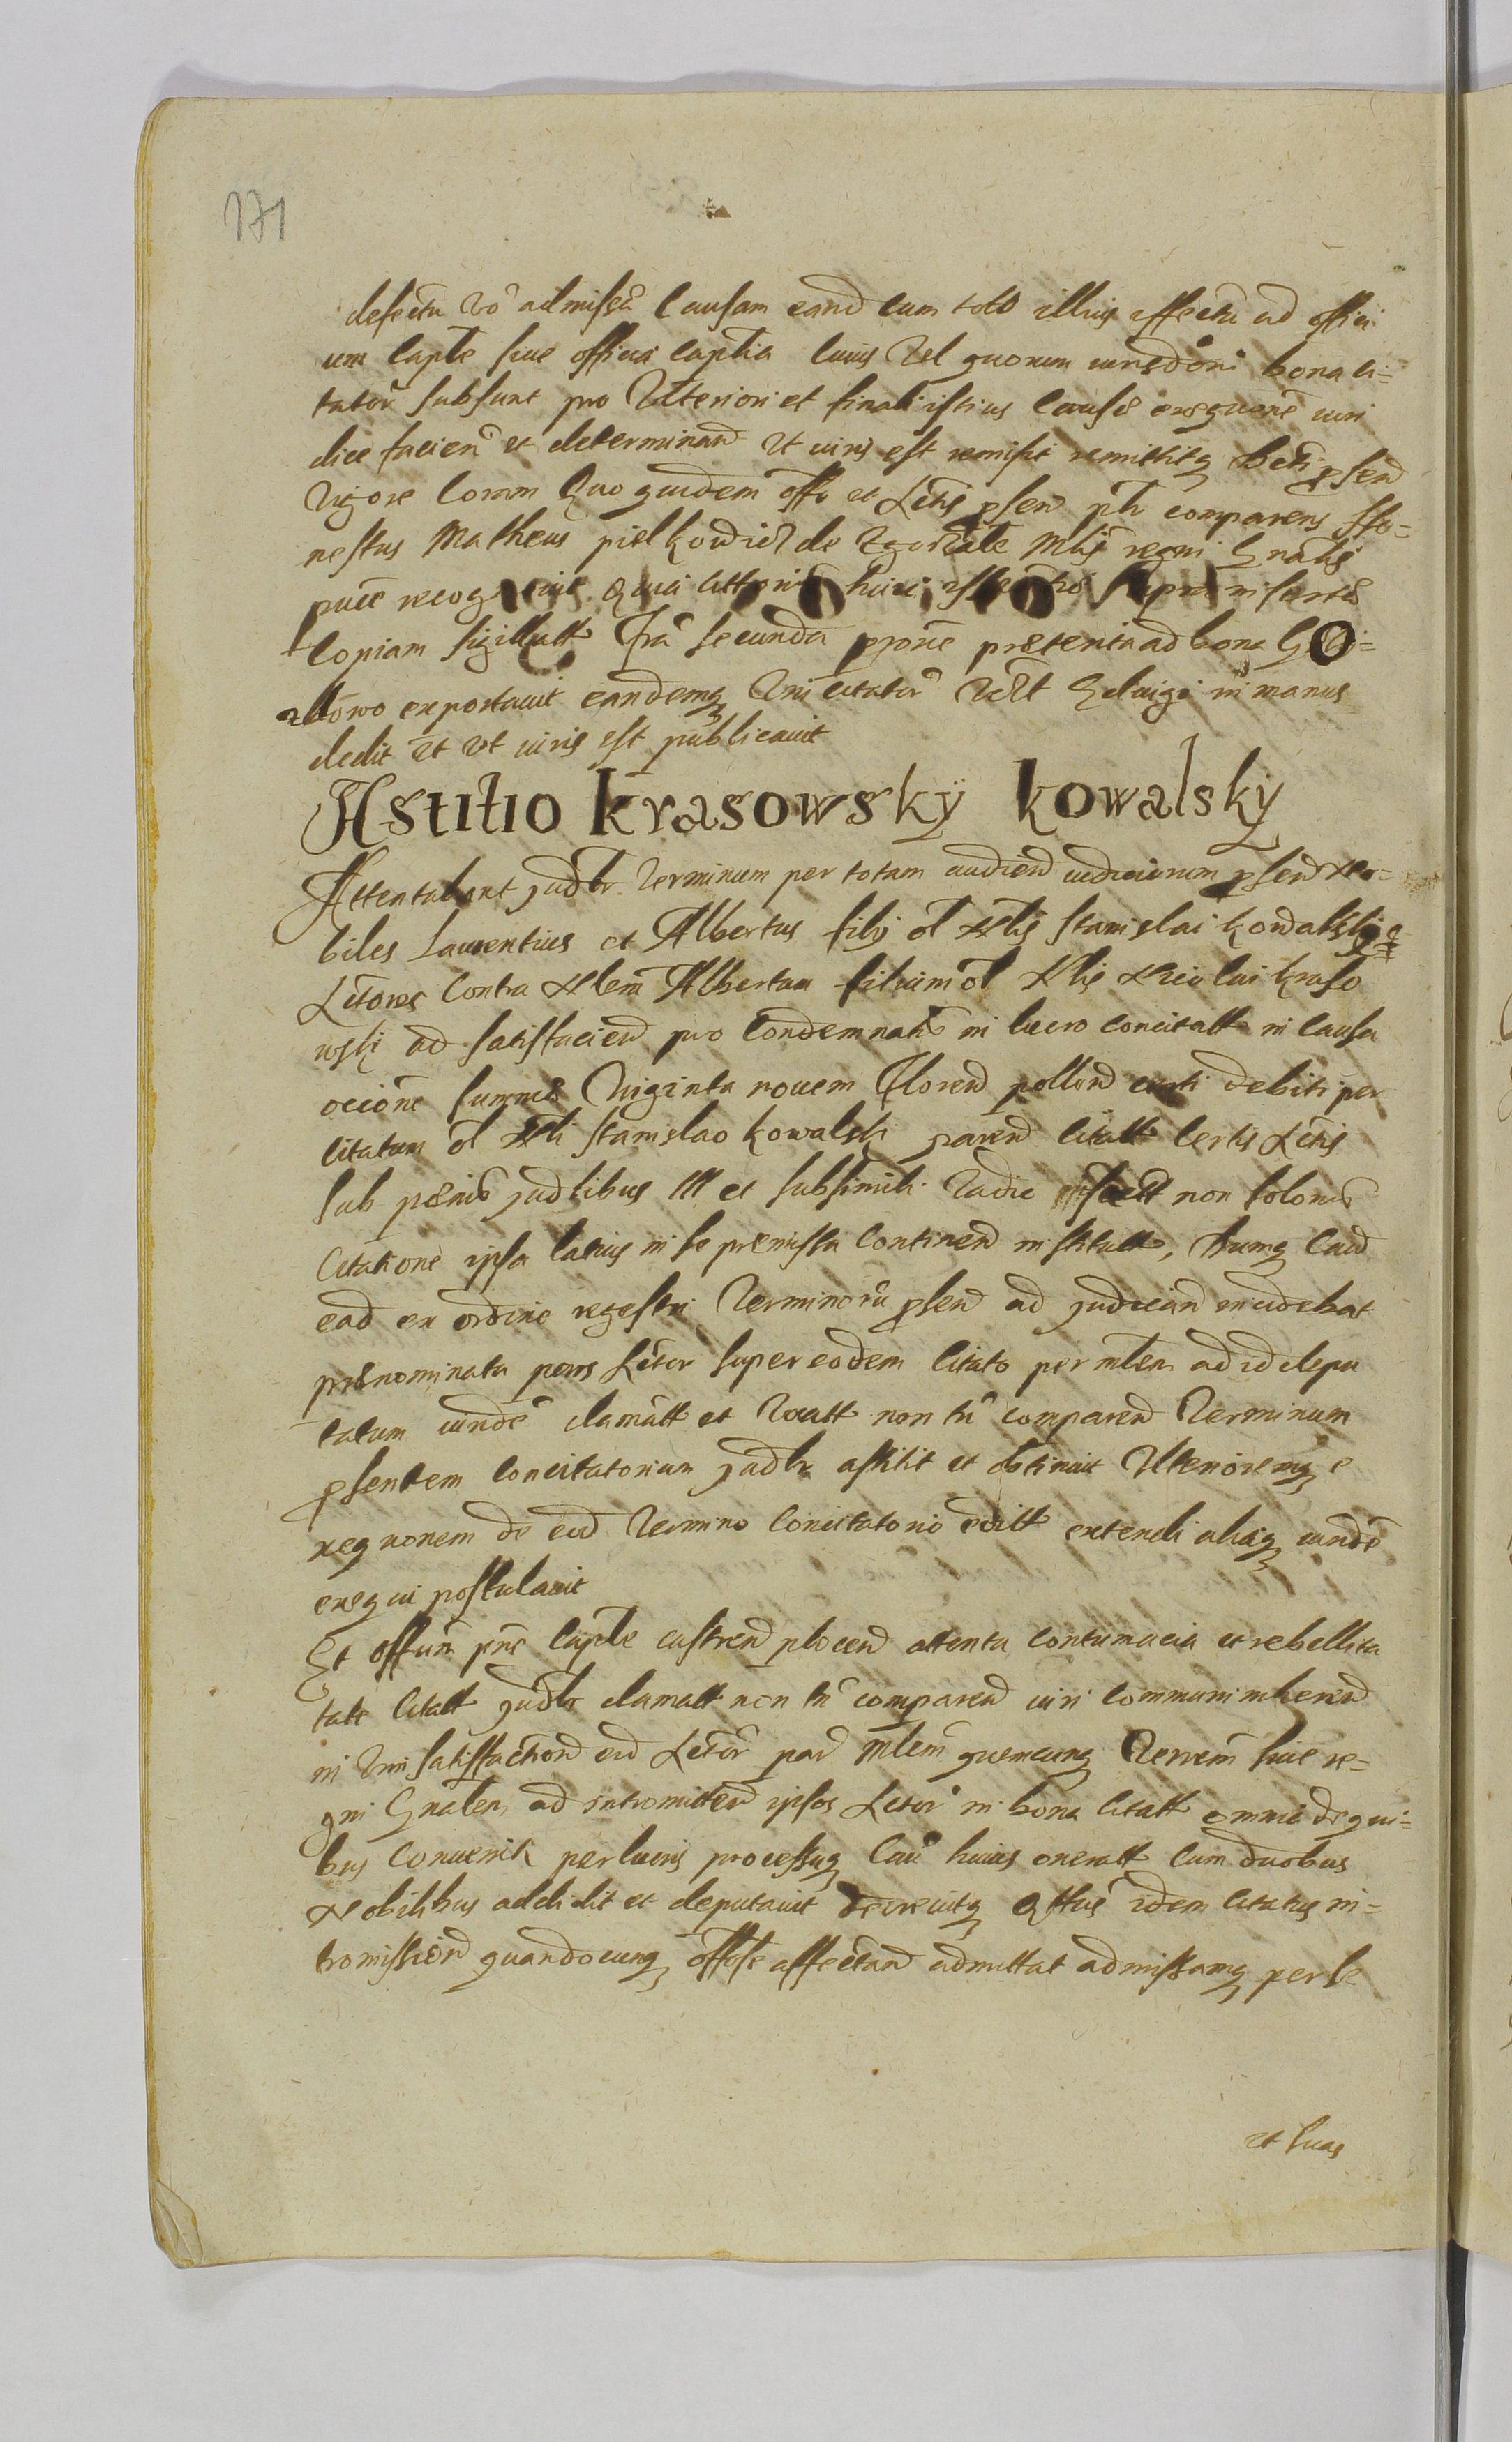 171
defectu vo admissa Causam eand cum toto illius effectu ad offici
um Capte siue officia captia cuius Vel quorum iurisdoni bona ci=
tator subsunt pro Vlteriori et finali istius Causæ exequone iuri
dice facien et determinand Vt iuris est remisit remittitq decti psen
Vigore Coram Quo quidem offo et Actis psen pti comparens Ho=
nestus Matheus pielkowicz de Mtis regni Gnalis
pute recog quia huic
Copiam sigillatt fra secunda pprone præterita ad bona
exportauit eandemq Vni citator in manus
dedit et vt iuris est publicauit
Astitio Krasowsky Kowalsky
Attentabant judlr Terminum per totam audiend iudiciorum psend No=
biles Laurentius et Albertus filij ol Nlis Stanislai Kowalskj
Actores Contra Nlem Albertum filium ol Nlis Nicolai Kraso
wski ad satisfaciend pro Condemnatis in lucro concitatt in causa
occione summæ Viginta nouem Floren pollon certi debiti per
Citatum ol Nli Stanislao Kowalski paren Citatt Certis Actis
sub pœnis judlibus Ill et subsimili Vadio non solonis
Citatione ipsa latius in se præmissa Continen institutt, Dumq Caud
ead ex ordine regestri Terminoru psend ad judicand incidebat
prænominata pars Actor super eodem Citato per mlem ad id depu
tatum iuinde clamatt et Vocatt non tn comparend Terminum
psentem Concitatorium judlr astitit et obtinuit Vlterioremq e
xeqnonem de eod Termino Concitatorio editt extendi aliaq iuinde
exequi postulauit
Et offum pns Capte castren plocen attenta contumacia et rebellita
tate Citatt judlr clamatt non tn comparend iuri communi inherend
in Vim satisfaction eid Actor par Mlem quemcunq Terrem siue re=
gni Gnalem ad intromitten ipsos Actor in bona Citatt omnia de qui=
bus Conuenit per lucris processuq Cau huius oneratt Cum duobus
Nobilibus addidit et deputauit decreuitq qttus idem Citatus in=
tromission quandocunq offose affectand admittat admissamq per se
et suas